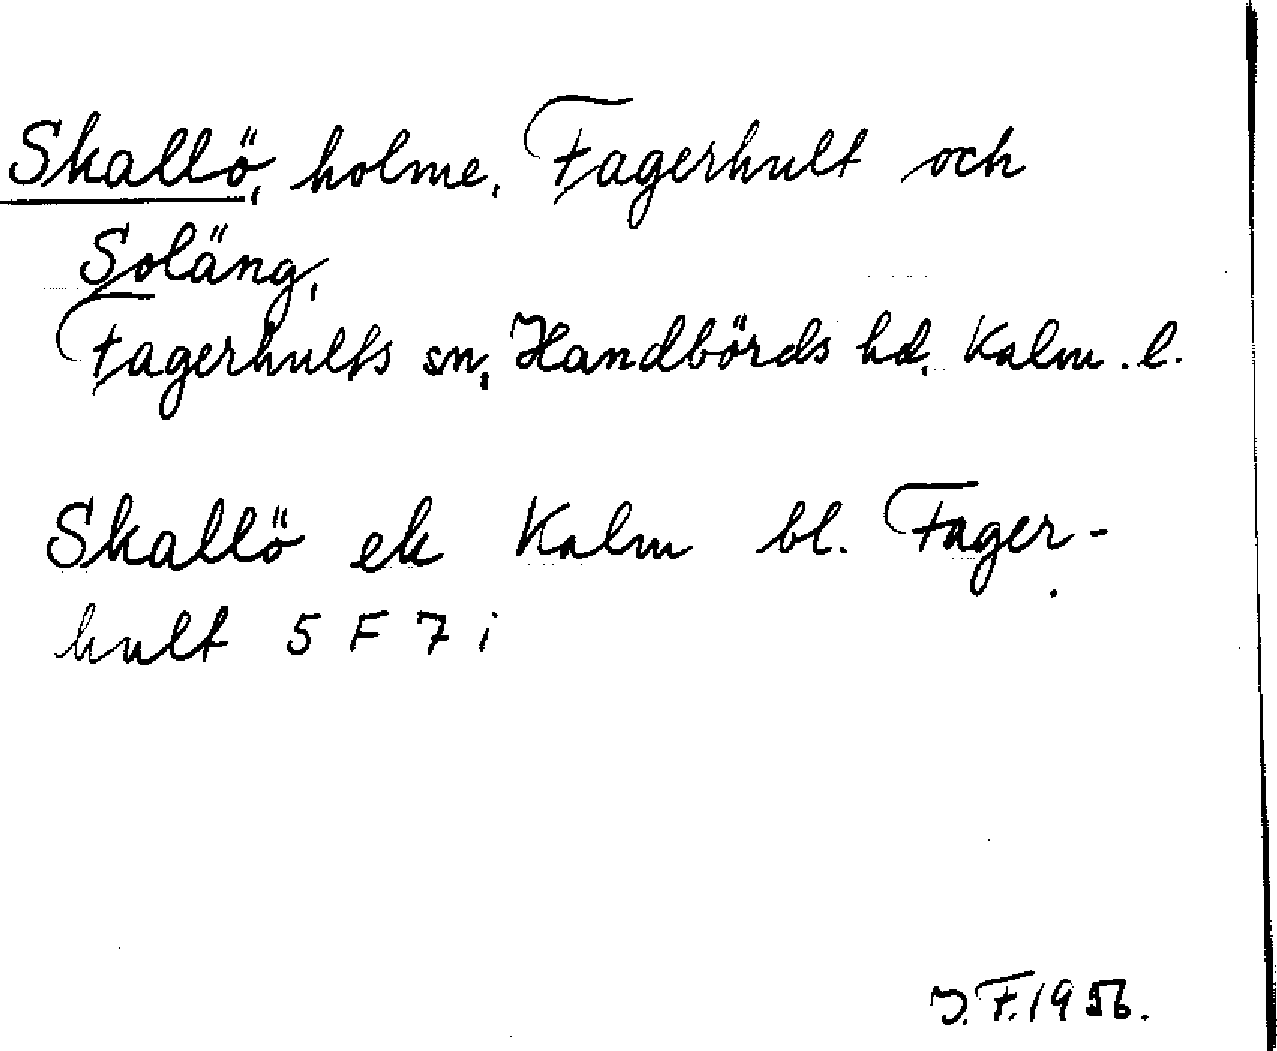 Skallö, holme, Fagerhult och
Soläng,
Fagerhults sn, Handbörds hd, Kalm. l.
Skallö ek Kalm bl. Fager-
hult 5 F 7 i
J.F. 1956.